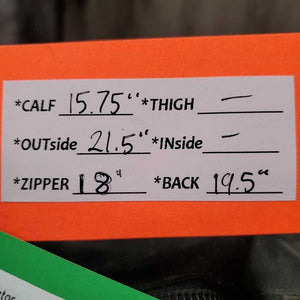 *CALF 15.75" *THIGH —
*OUTside 21.5" *INside —
*ZIPPER 18" *BACK 19.5"
tor